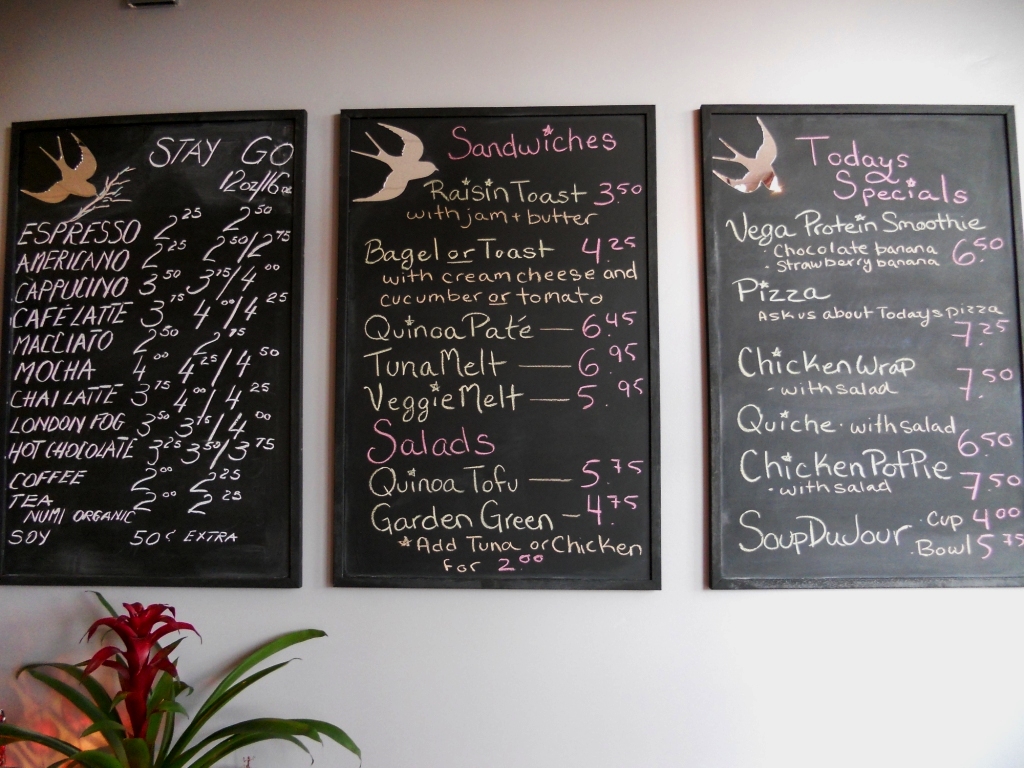 STAY GO
12oz/16oz
ESPRESSO 2.25 2.50
AMERICANO 2.25 2.50/2.75
CAPPUCINO 3.50 3.75/4.00
CAFÉ LATTE 3.75 4.00/4.25
MACCIATO 2.50 2.75
MOCHA 4.00 4.25/4.50
CHAI LATTE 3.75 4.00/4.25
LONDON FOG 3.50 3.75/4.00
HOT CHOLOLATE 3.25 3.50/3.75
COFFEE 2.00 2.25
TEA 2.00 2.25
NUMI ORGANIC
SOY 50¢ EXTRA
Sandwiches
Raisin Toast 3.50
with jam + butter
Bagel or Toast 4.25
with cream cheese and
cucumber or tomato
Quinoa Paté — 6.45
Tuna Melt — 6.95
Veggie Melt — 5.95
Salads
Quinoa Tofu — 5.75
Garden Green — 4.75
*Add Tuna or Chicken
for 2.00
Todays
Specials
Vega Protein Smoothie
· Chocolate banana 6.50
· Strawberry banana
Pizza
Ask us about Todays pizza
7.25
Chicken Wrap
· with salad 7.50
Quiche · with salad
6.50
Chicken Pot Pie
· with salad 7.50
Soup Du Jour · Cup 4.00
· Bowl 5.75